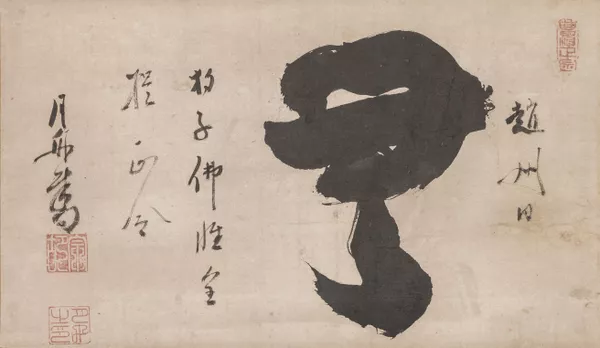 趙州曰
無
狗子佛性全
提正令
月舟